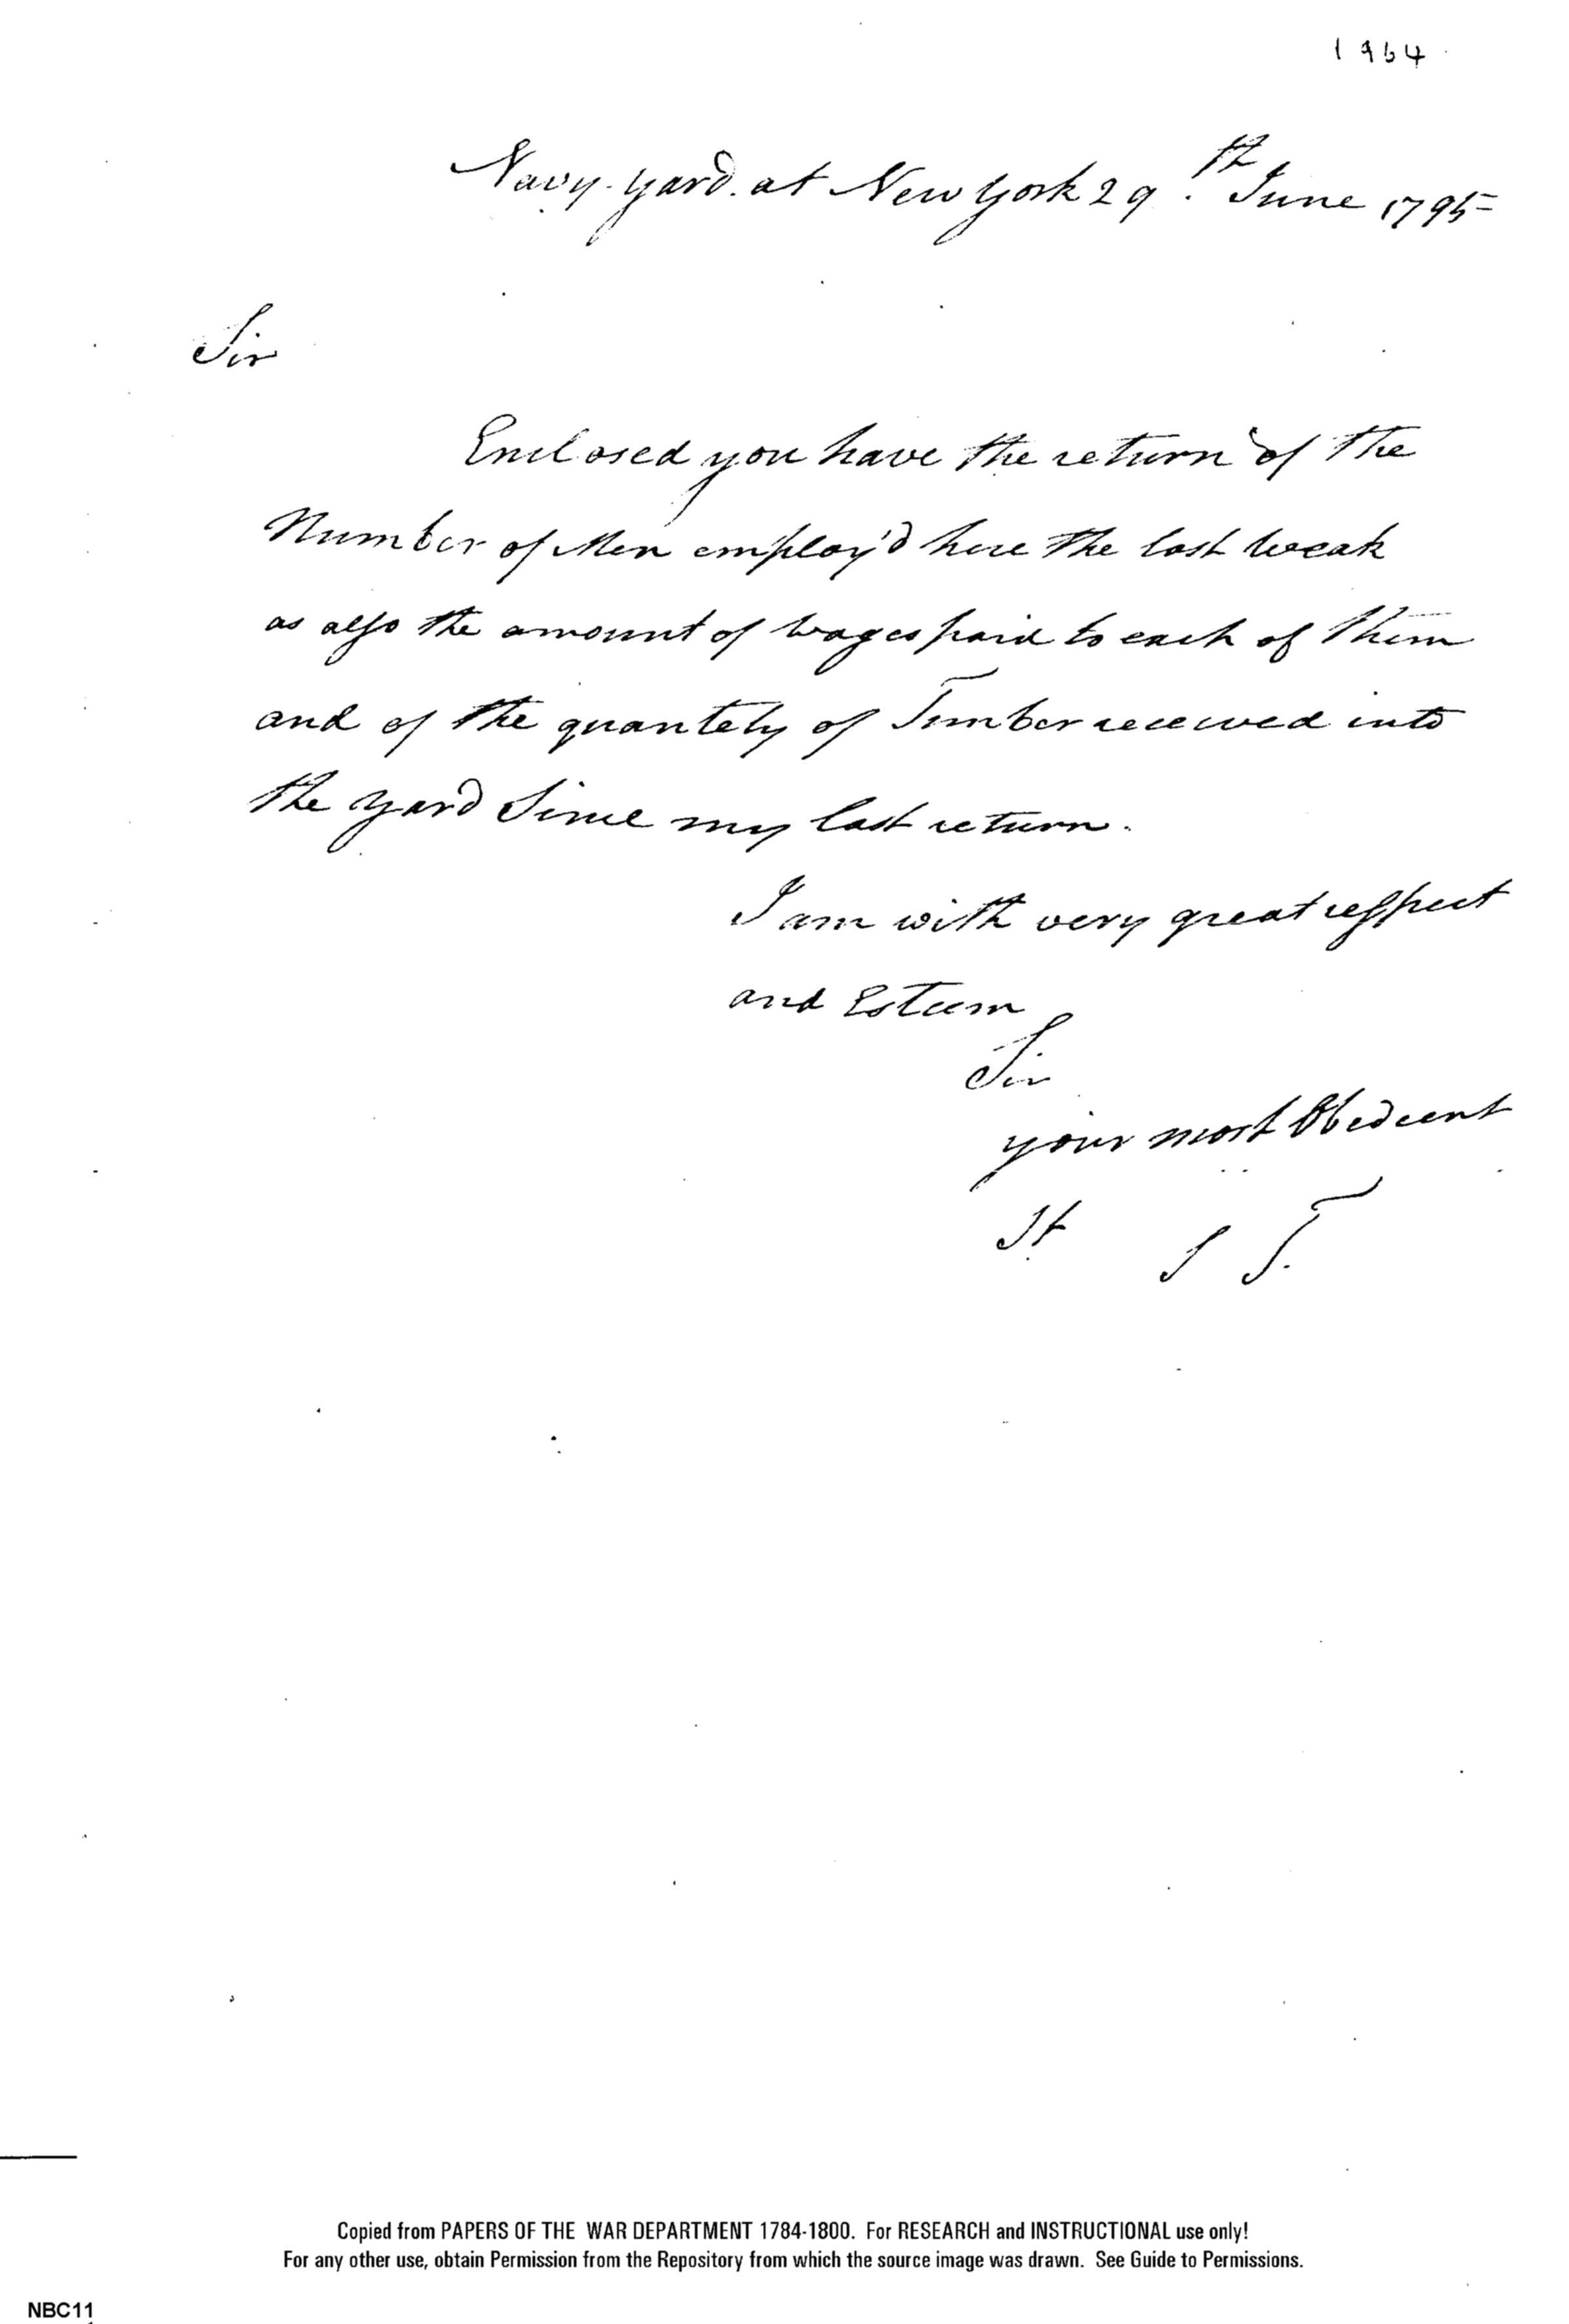 1964
Navy-yard at New York 29th June 1795
Sir
Enclosed you have the return of the
Number of Men employ'd here the last weak
as also the amount of wages paid to each of them
and of the quantety of Timber received into
the yard Since my last return.
I am with very great respect
and Esteem
Sir
your most Obedient
St
Copied from PAPERS OF THE WAR DEPARTMENT 1784-1800. For RESEARCH and INSTRUCTIONAL use only!
For any other use, obtain Permission from the Repository from which the source image was drawn. See Guide to Permissions.
NBC11